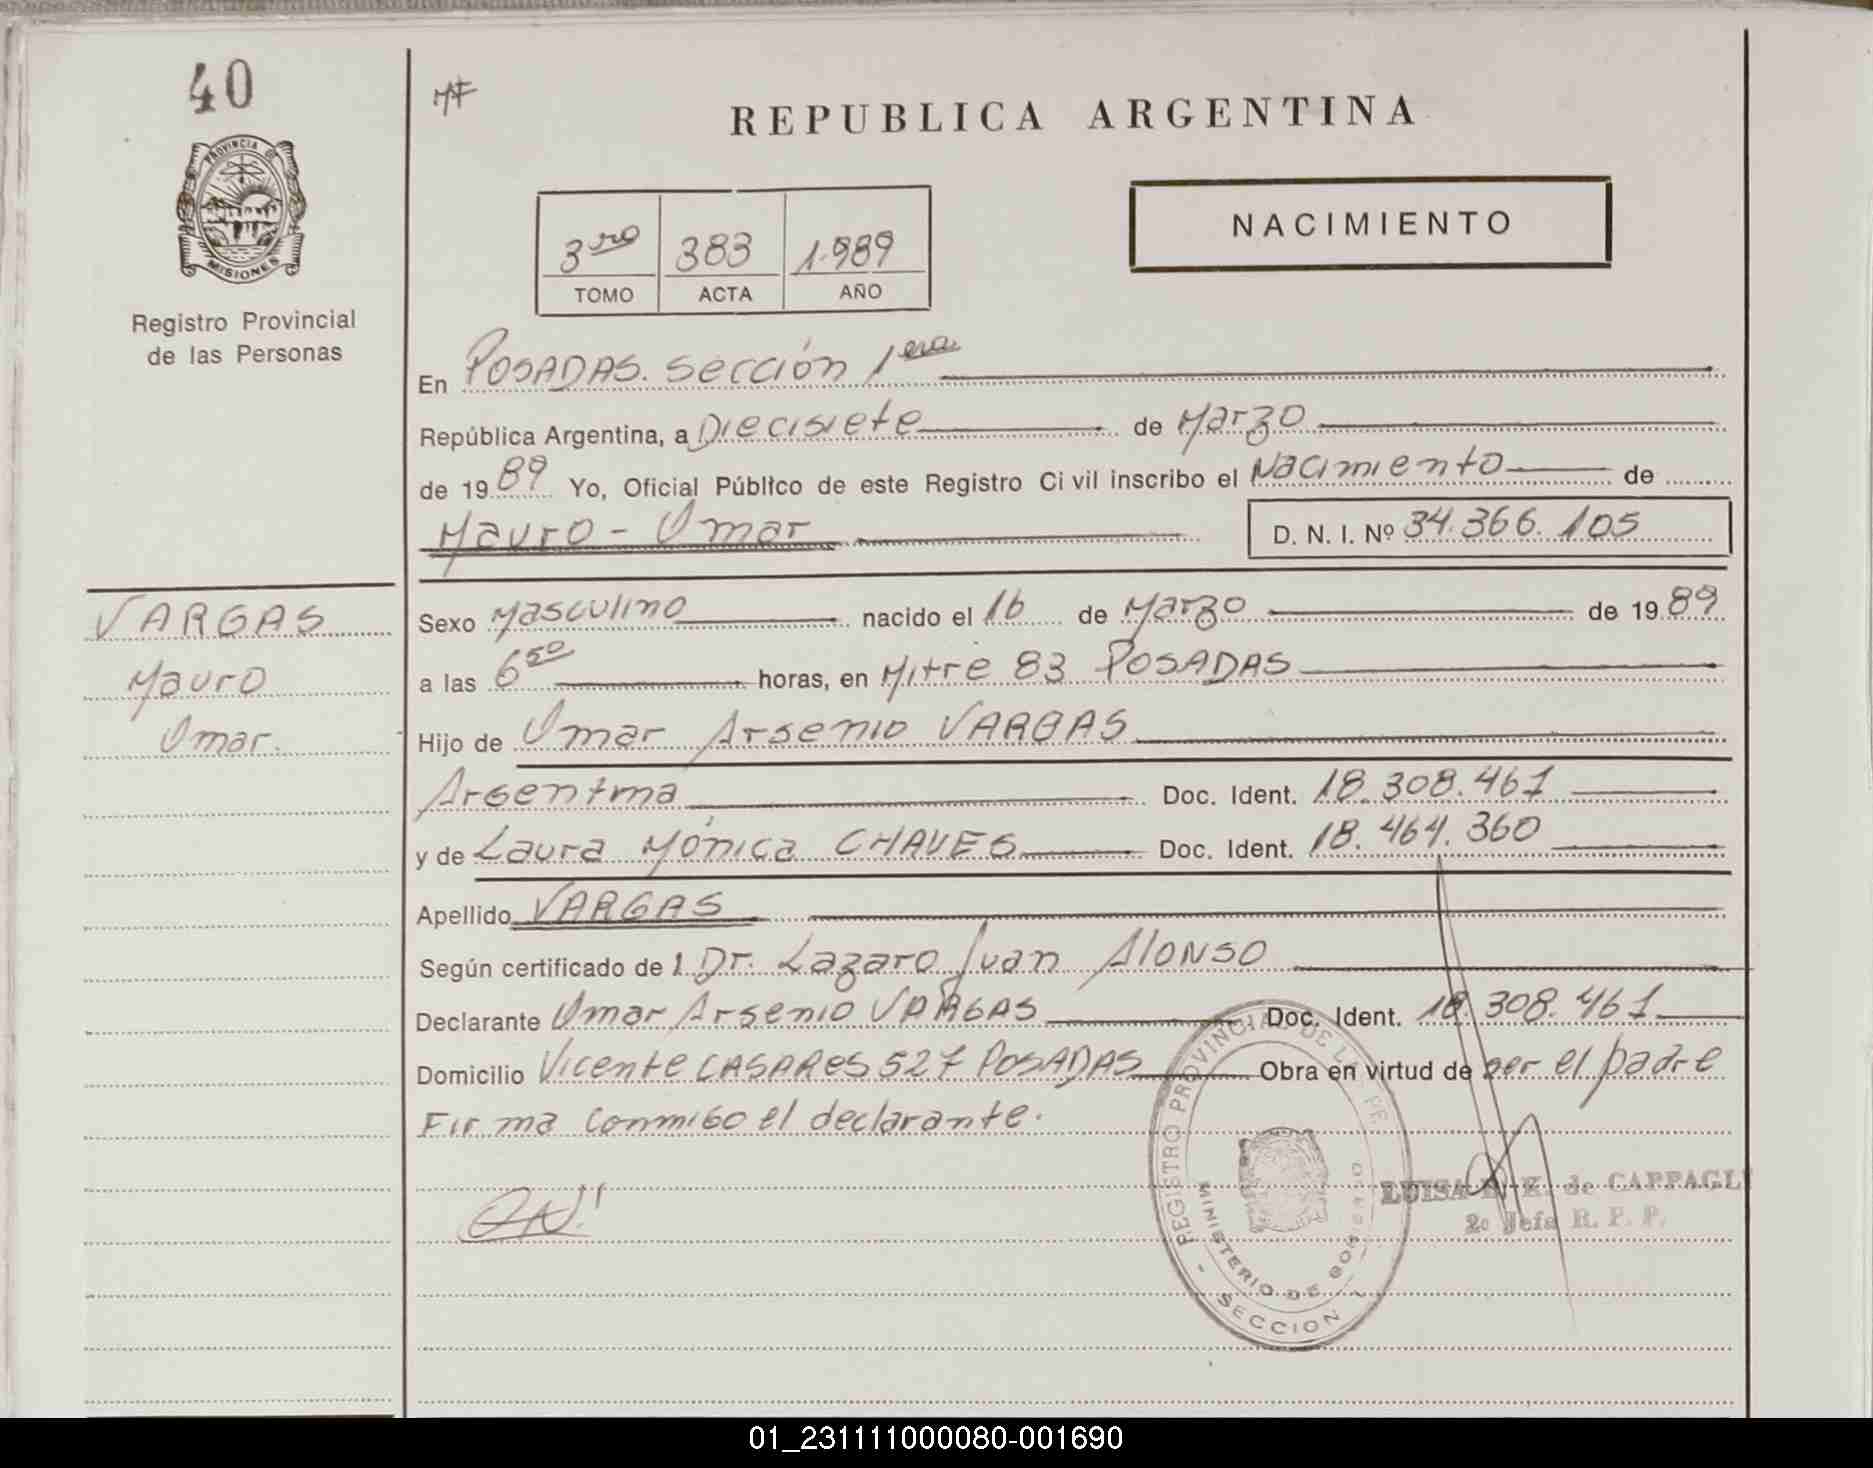 40
MF
REPUBLICA ARGENTINA
PROVINCIA DE
MISIONES
Registro Provincial
de las Personas
3ro 383 1.989
TOMO ACTA AÑO
NACIMIENTO
En POSADAS. Sección 1era
República Argentina, a Diecisiete de Marzo
de 1989 Yo, Oficial Público de este Registro Civil inscribo el Nacimiento de
Mauro - Omar
D. N. I. Nº 34.366.105
VARGAS
Mauro
Omar.
Sexo Masculino nacido el 16 de Marzo de 1989
a las 6 50 horas, en Mitre 83 POSADAS
Hijo de Omar Arsenio VARGAS
Argentina Doc. Ident. 18.308.461
y de Laura Mónica CHAVES Doc. Ident. 18.464.360
Apellido VARGAS
Según certificado de l Dr. Lazaro Juan Alonso
Declarante Omar Arsenio VARGAS Doc. Ident. 18.308.461
Domicilio Vicente CASARES 527 POSADAS Obra en virtud de ser el padre
Firma conmigo el declarante.
REGISTRO PROVINCIAL DE LAS PE
MINISTERIO DE GOBIERNO
- SECCION 1
LUISA K. de CAPPAGLI
2º Jefa R. P. P.
01_231111000080-001690